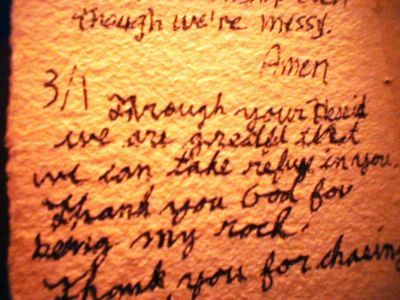 though we're messy.
Amen
3/1
Through your
we are greated that
we can take refuge in you.
Thank you God for
being my rock.
Thank you for chasing